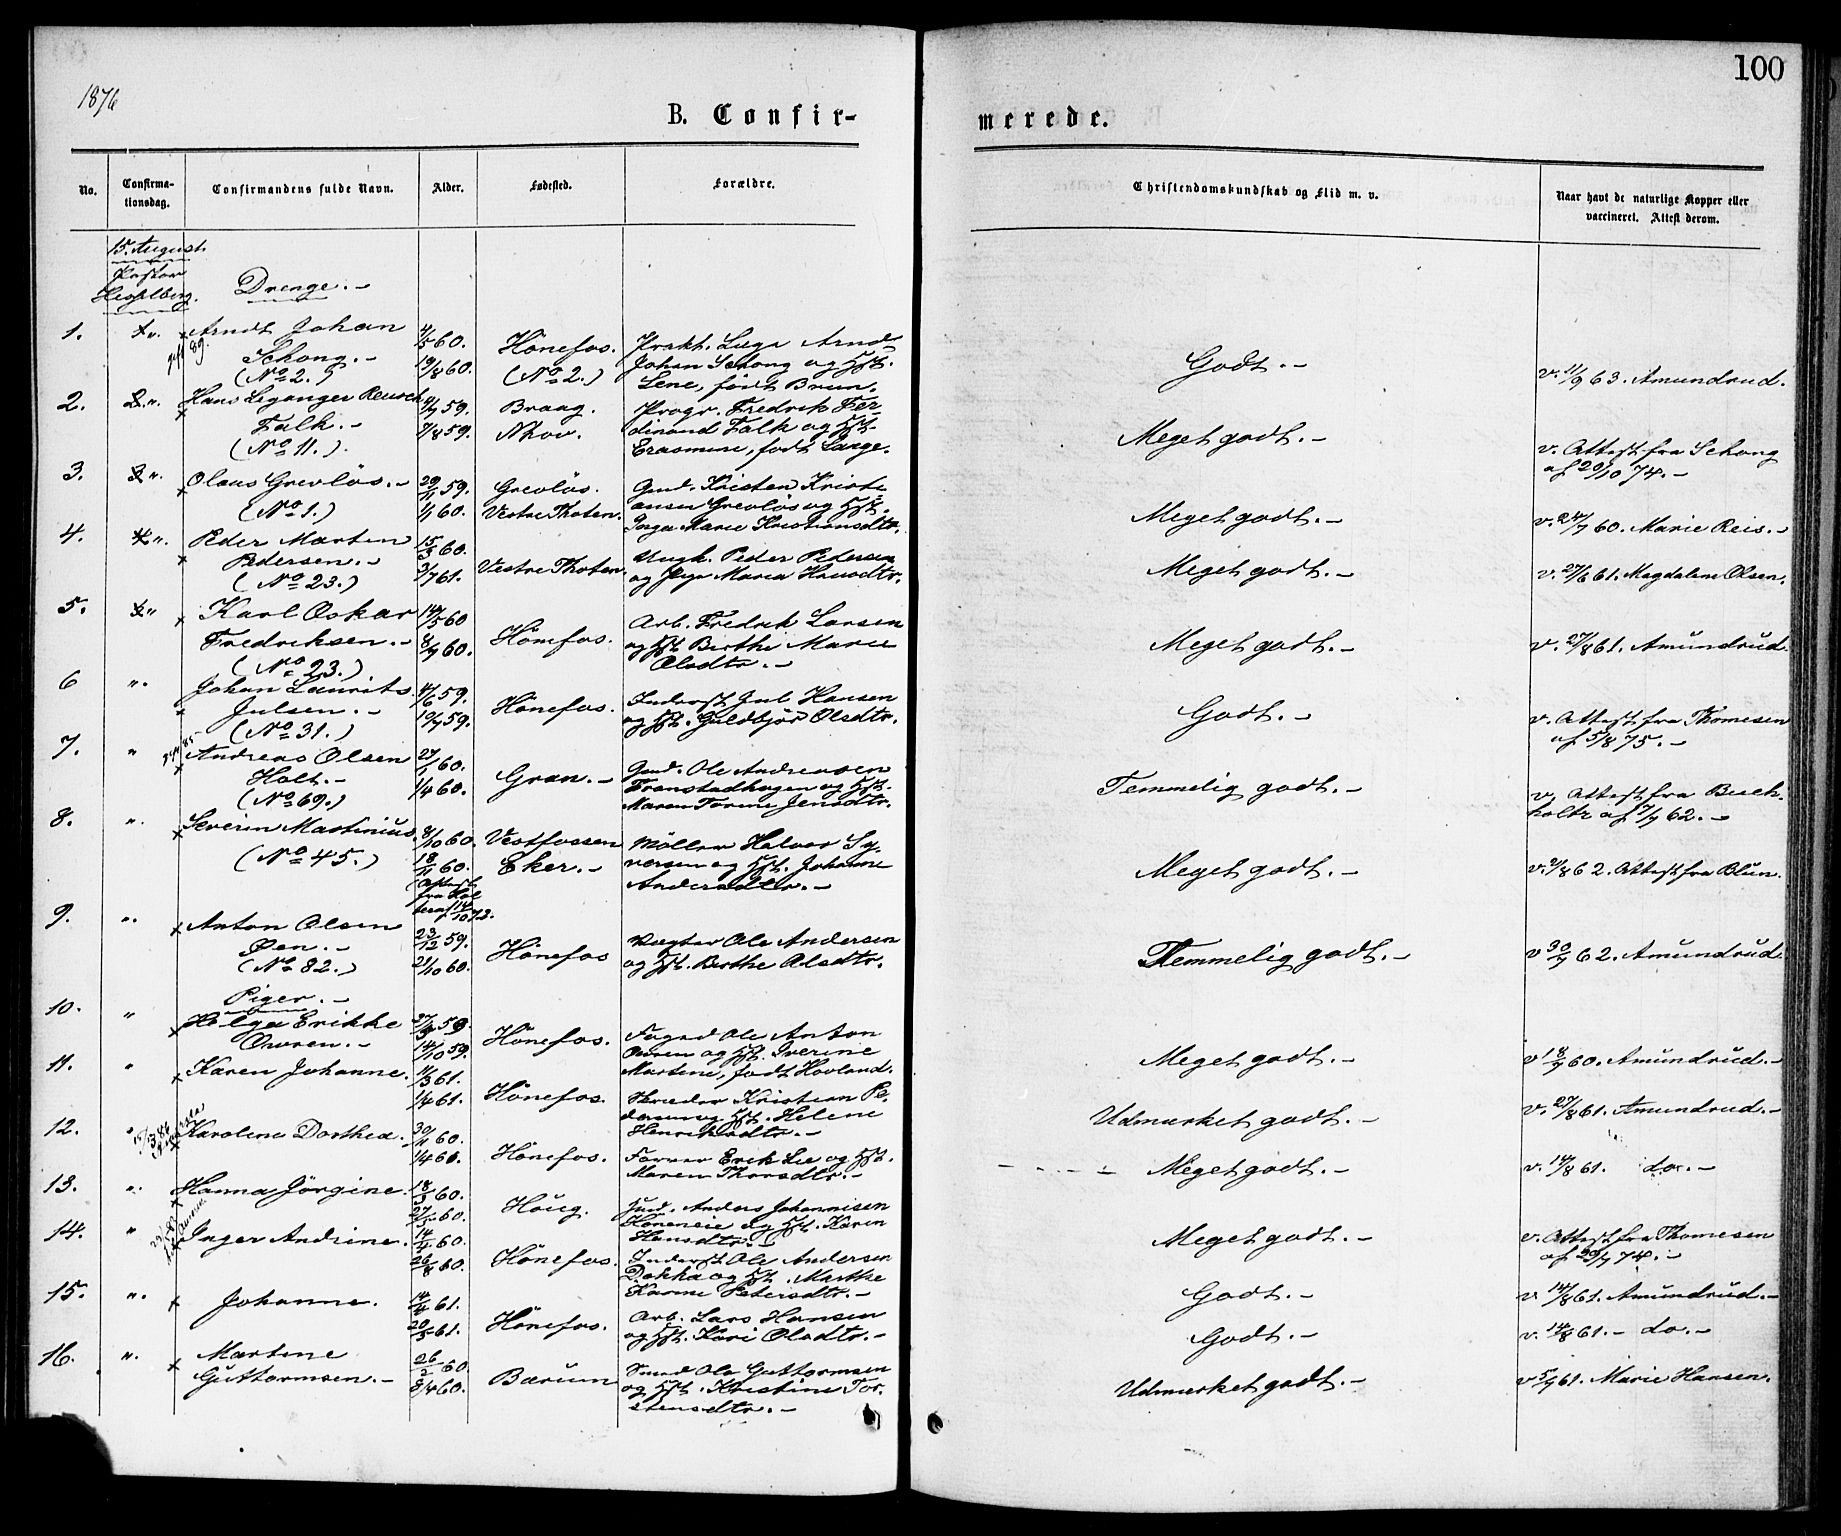 100
1876
B. Confir-
merede.
No.
Confirma-
tionsdag.
Confirmandens fulde Navn.
Alder.
Fødested.
Forældre.
Christendomskundskab og Flid m. v.
Naar havt de naturlige Kopper eller
vaccineret. Attest derom.
15. August.
Pastor
Hesselberg.
Drenge. -
1. Arndt Johan
Schong. -
(No 2.)
4/5 60.
19/8 60.
Hönefos.
(No 2.)
Prakt. Læge Arndt
Johan Schong og Hst.
Lene, født Brun.
Godt. -
v. 11/9 63. Amundrud.
2. Hans Leganger Reusch
Falk. -
(No 11.)
59.
7/8 59.
Braag.
Prgr. Fredrik Fer-
dinand Falk og Hst.
Erasmine, født Lange.
Meget godt. -
v. Attest fra Schong
af 20/10 74. -
3. Olaus Grevlös. -
(No 1.)
29/11 59.
1/1 60.
Grevlös.
Vestre Thoten.
Gmd. Kristen Kristi-
ansen Grevlös og Hst.
Inger Marie Kristiansdtr.
Meget godt. -
v. 24/7 60. Marie Reis. -
4. Peder Morten
Pedersen. -
(No 23.)
15/3 60.
3/7 61.
Vestre Thoten.
Ungk. Peder Pedersen
og Pige Maria Hansdtr.
Meget godt. -
v. 27/6 61. Magdalene Olsen.
5. Karl Oskar
Fredriksen. -
(No 23.)
14/5 60
8/7 60.
Hönefos.
Arb. Fredrik Larsen
og Hst. Berthe Marie
Olsdtr. -
Meget godt. -
v. 27/8 61. Amundrud.
6 Johan Laurits
Julsen. -
(No 31.)
4/6 59.
10/7 59.
Hönefos.
Inderst Jul Hansen
og Hst. Guldbjör Olsdtr.
Godt. -
v. Attest fra Thomesen
af 5/8 75. -
7. Andreas Olsen
Holt. -
(No 69.)
27/1 60.
1/4 60.
Gran. -
Gmd. Ole Andreasen
Framstadhagen og Hst.
Maren Torine Jensdtr.
Temmelig godt. -
v. Attest fra Buch-
holtz af 7/7 62. -
8. Severin Martinius.
(No 45.)
8/10 60.
18/11 60.
(Attest
fra Hol
tem 14/10 73.
Vestfossen
Eker. -
Möller Halvor Sy-
versen og Hst. Johanne
Andersdtr. -
Meget godt. -
v. 2/8 62. Attest fra Blün.
9. Anton Olsen
Öen. -
(No 82.)
23/12 59.
21/10 60.
Hönefos
Vægter Ole Andersen
og Hst. Berthe Olsdtr.
Temmelig godt. -
v 30/7 62. Amundrud.
Piger. -
10. Helga Erikke
Owren. -
27/9 59.
14/10 59.
Hönefos.
Foged Ole Anton
Owren og Hst. Iverine
Martine, født Hovland.
Meget godt. -
v 18/7 60. Amundrud. -
11. Karen Johanne.
11/3 61.
1/4 61.
Hönefos.
Skræder Kristian Pe-
dersen og Hst. Helene
Henriksdtr. -
Udmærket godt. -
v. 27/8 61. Amundrud. -
12. Karoline Dorthea.
30/11 60.
1/4 60.
Hönefos.
Farver Erik Lie og Hst.
Maren Thorsdtr. -
Meget godt. -
v. 14/8 61. do. -
13. Hanna Jörgine.
18/3 60.
27/5 60.
Houg.
Gmd. Anders Johannisen
Höneneie og Hst. Karen
Hansdtr. -
Meget godt. -
v. Attest fra Thomesen
af 29/7 74. -
14. Inger Andrine.
14/4 60.
26/8 60.
Hönefos.
Inderst Ole Andersen
Dokka og Hst. Marthe
Karine Petersdtr. -
Godt. -
v. 14/8 61. Amundrud. -
15. Johanne.
14/4 61.
20/5 61.
Hönefos.
Arb. Lars Hansen
og Hst. Kari Olsdtr. -
Godt. -
v. 14/8 61. - do. -
16. Martine
Guttormsen. -
26/2 60.
8/4 60.
Bærum
Smed Ole Guttormsen
og Hst. Kristine Tor-
stensdtr. -
Udmærket godt. -
v 5/7 61. Marie Hansen.